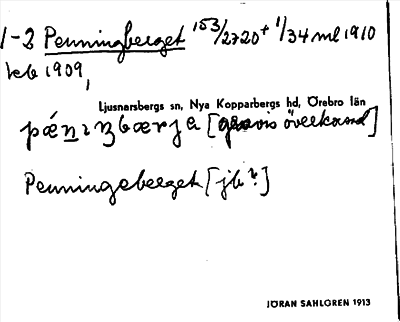 1-2 Penningberget 153/2720 + 1/34 ml 1910
keb 1909,
Ljusnarsbergs sn, Nya Kopparbergs hd, Örebro län
[gravis överkorsad]
Penningeberget [jb?]
JÖRAN SAHLGREN 1913